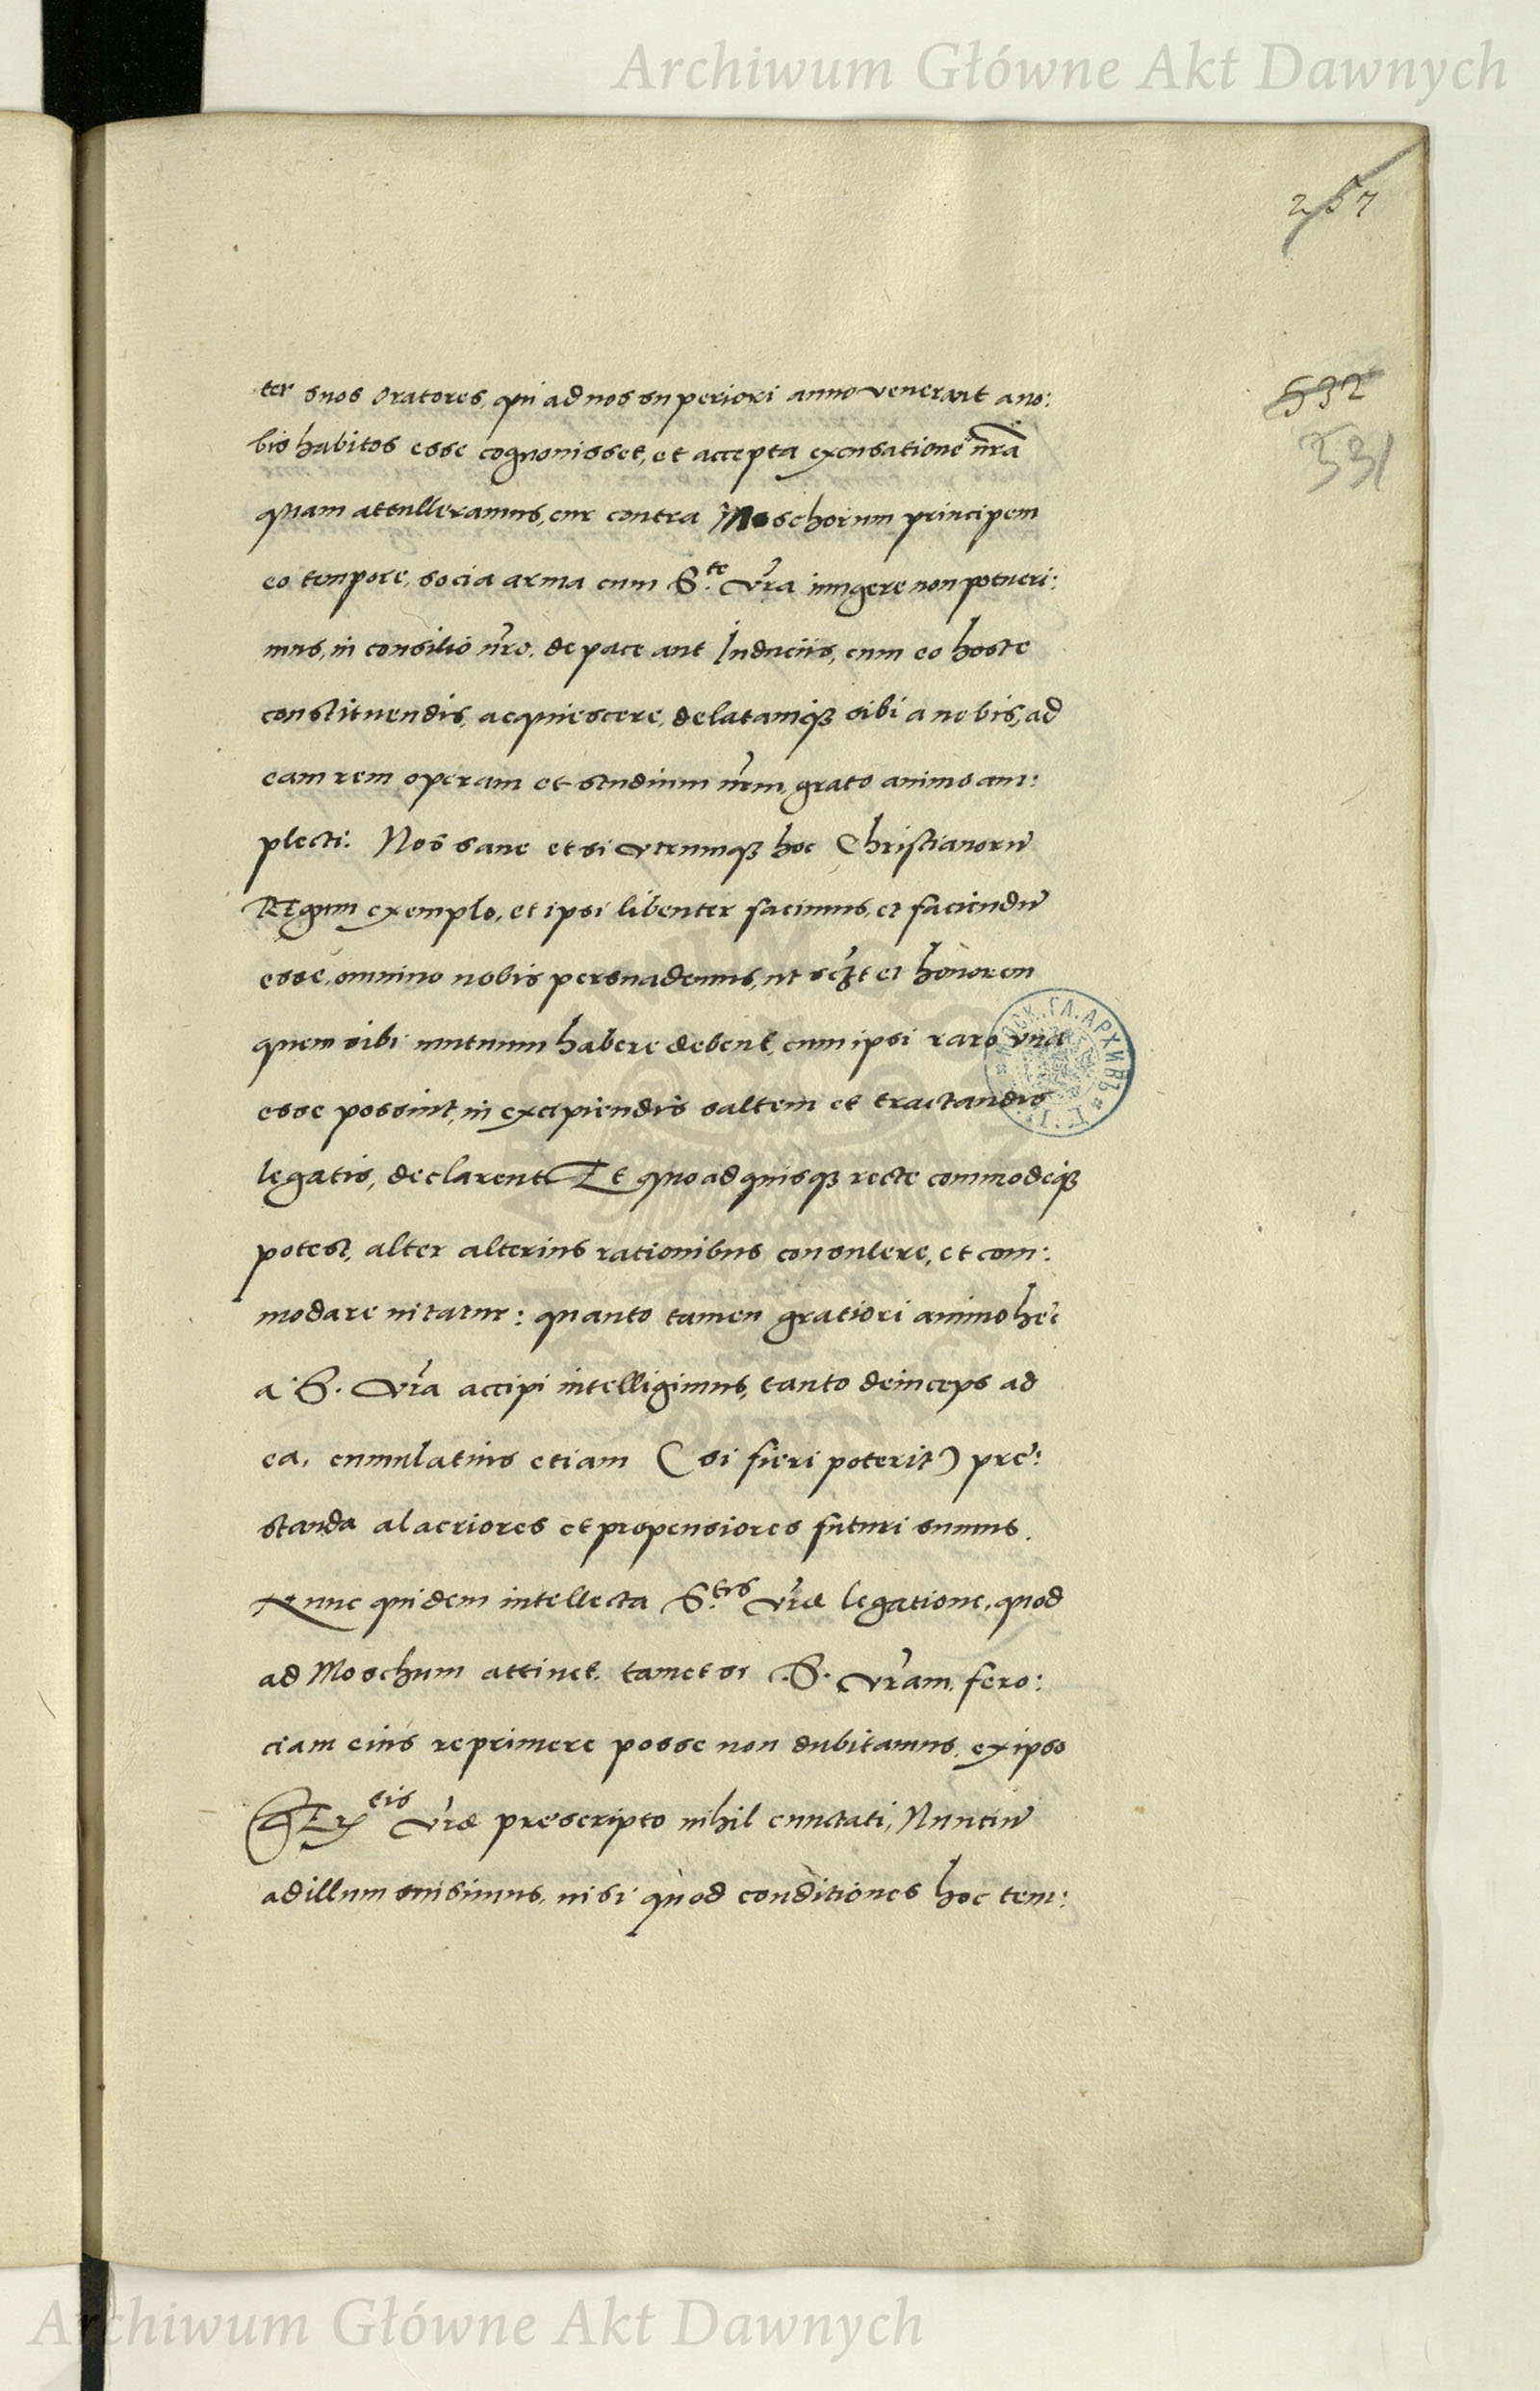 Archiwum Główne Akt Dawnych
257
532
331
ter suos oratores, qui ad nos superiori anno venerant a no:
bis habitos esse cognouisset, et accepta excusatione nr̃a
quam attulleramus, cur contra Moschorum principem
eo tempore, socia arma cum S.te vr̃a iungere non potueri:
mus, in consilio nr̃o, de pace aut Induciis, cum eo hoste
constituendis, acquiescere, delatamq̃ sibi a nobis, ad
eam rem operam et studium nr̃m, grato animo am:
plecti: Nos sane etsi vtrumq̃ hoc Christianorũ
REgum exemplo, et ipsi libenter facimus, et faciendũ
esse, omnino nobis persuademus, ut sczt et honorem
quem sibi mutuum habere debent, cum ipsi raro vna
esse possint, in excipiendis saltem et tractandis
legatis, declarent Et quoad quisq̃ recte commodeq̃
potest, alter alterius rationibus consulere, et com:
modare nitatur: quanto tamen gratiori animo hec
a S. vr̃a accipi intelligimus, tanto deinceps ad
ea, cumulatius etiam (si fieri poterit) pre:
standa alacriores et propensiores futuri sumus.
Nunc quidem intellecta S.tis vr̃æ legatione, quod
ad Moschum attinet, tametsi S. vr̃am, fero:
ciam eius reprimere posse non dubitamus, ex ipso
SEr.tis vr̃æ prescripto nihil cunctati, Nuntiũ
ad illum misimus, nisi quod conditiones hoc tem:
МОСК. ГЛ. АРХИВЪ
Archiwum Główne Akt Dawnych